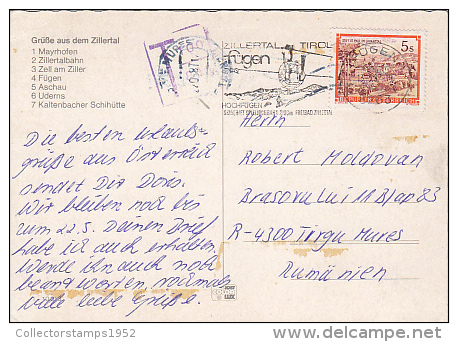 Grüße aus dem Zillertal
1 Mayrhofen
2 Zillertalbahn
3 Zell am Ziller
4 Fügen
5 Aschau
6 Uderns
7 Kaltenbacher Schihütte
Die besten urlaubs=
grüße aus Österreich
sendet Dir Doris.
Wir bleiben noch bis
zum 22.5. Deinen Brief
habe ich auch erhalten.
Werde ihn auch noch
beantworten, nochmals
viele liebe Grüße.
ZILLERTAL TIROL
fügen
HOCHFÜGEN
5s
REPUBLIK ÖSTERREICH
Herrn
Robert Moldovan
Brasovului 11 B/ap 83
R-4300 Tirgu Mures
Rumänien
Collectorstamps1952
delcampe.net